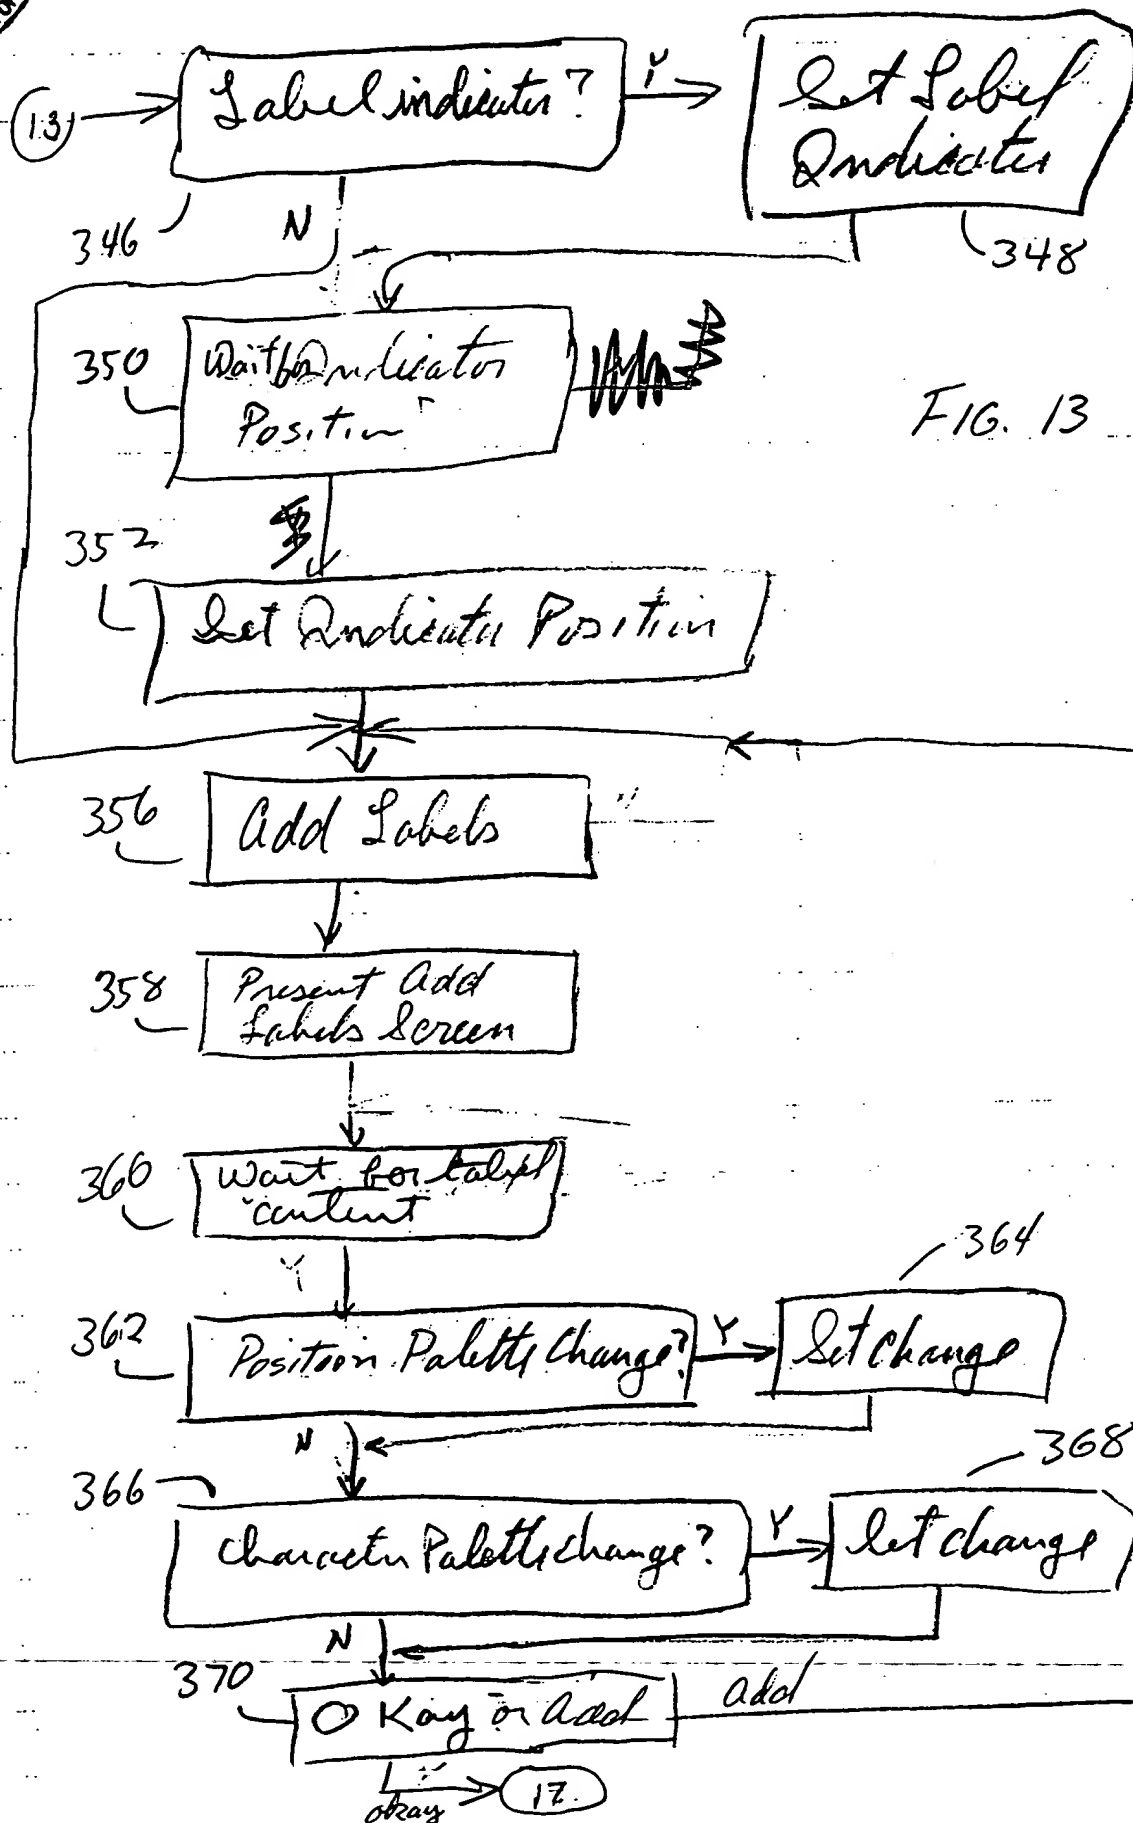 13
Label indicator?
Y
Set Label
Indicator
346
N
348
350
Wait for Indicator
Position
FIG. 13
352
Set Indicator Position
356
Add Labels
358
Present Add
Labels Screen
360
Wait for Label
content
Y
364
362
Position Palette Change?
Y
Set Change
N
368
366
Character Palette change?
Y
Set change
N
370
O Kay or Add
Add
okay
17.